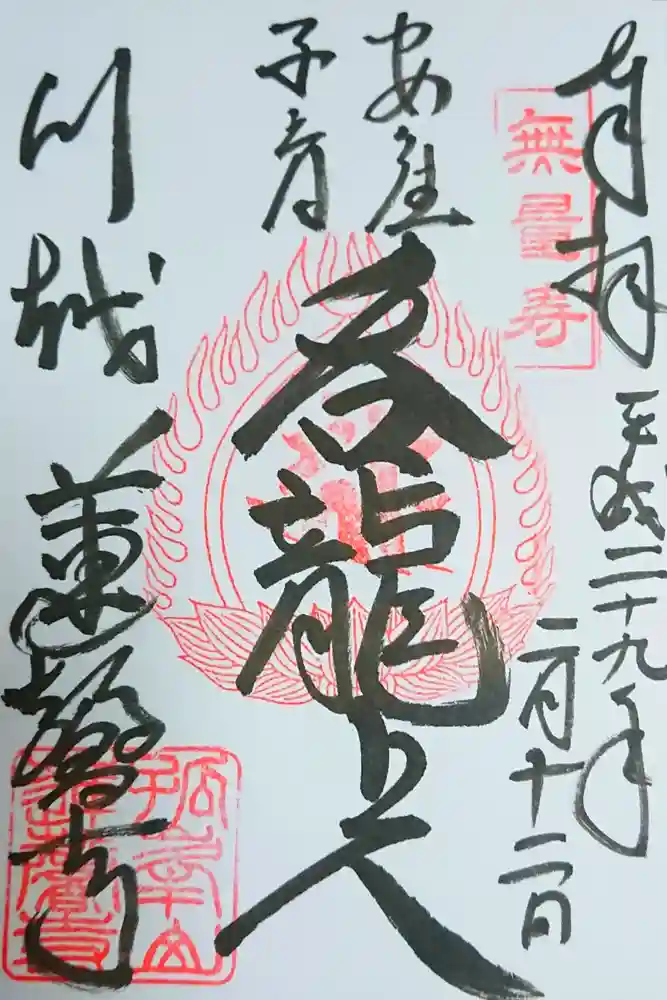 奉拝
平成二十九年
二月十二日
無量寿
安産
子育
呑龍上人
川越
蓮馨寺